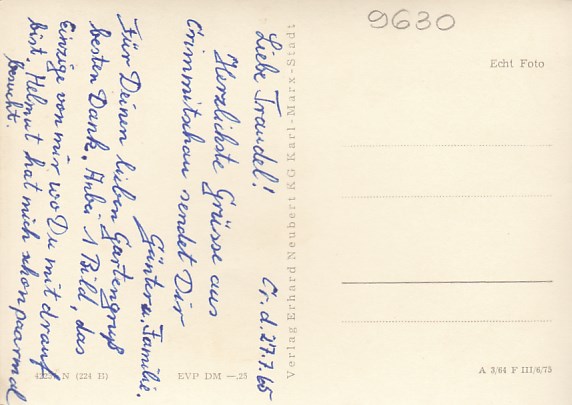 Liebe Traudel! Cr. d. 27.7.65
Herzlichste Grüsse aus
Crimmitschau sendet Dir
Günter u. Familie.
Für Deinen lieben Gartengruß
besten Dank. Anbei 1 Bild, das
Einzige von mir wo Du mit drauf
bist. Helmut hat mich schon paarmal
besucht.
Verlag Erhard Neubert KG Karl-Marx-Stadt
9630
Echt Foto
N (224 H)
EVP DM —,25
A 3/64 F III/6/75